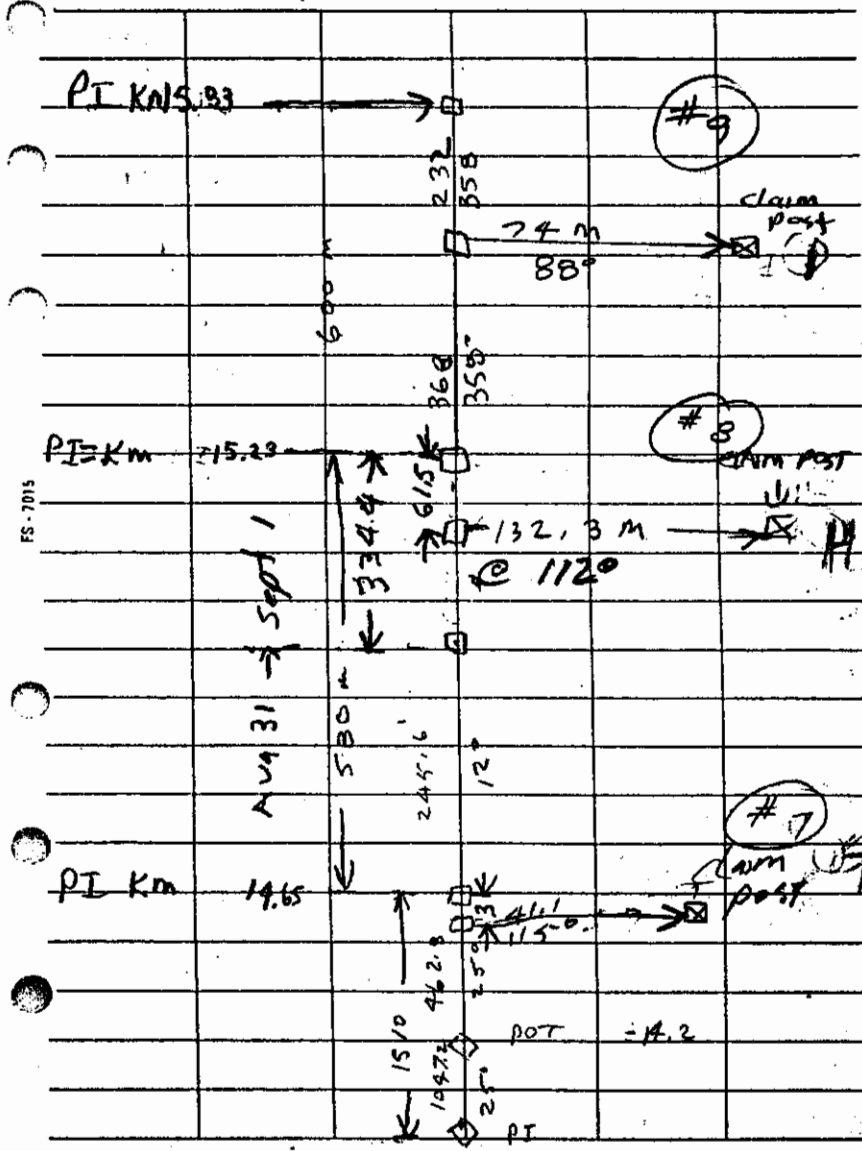 PI Km 15.83
#9
232
358
claim post
74 m
88°
600 m
368
358°
#8
PI = Km 15.23
claim post
61.5
334.4
132.3 m
@ 112°
H
FS-7015
Aug 31 → Sept 1
580 m
245.6
12°
#7
PI Km 14.65
claim post
3
41.1
115°
462.8
25°
1510
POT 14.2
1047.2
25°
PI